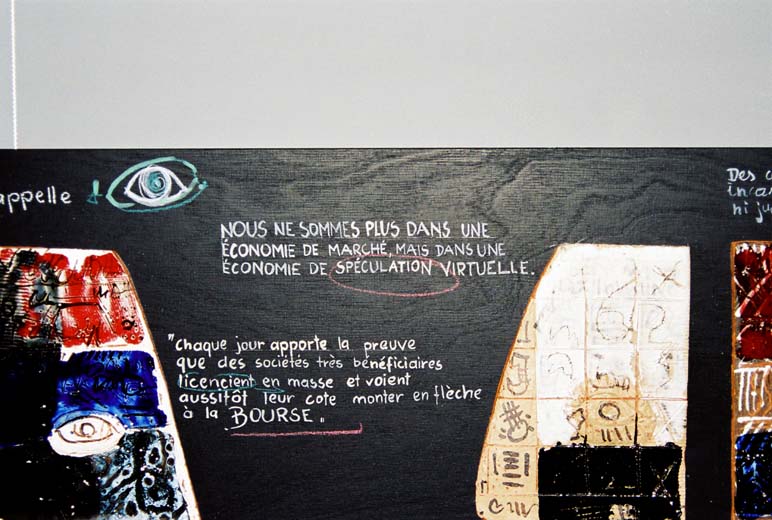 appelle
Des
NOUS NE SOMMES PLUS DANS UNE
ÉCONOMIE DE MARCHÉ, MAIS DANS UNE
ÉCONOMIE DE SPÉCULATION VIRTUELLE.
ni
"Chaque jour apporte la preuve
que des sociétés très bénéficiaires
licencient en masse et voient
aussitôt leur cote monter en flèche
à la BOURSE"